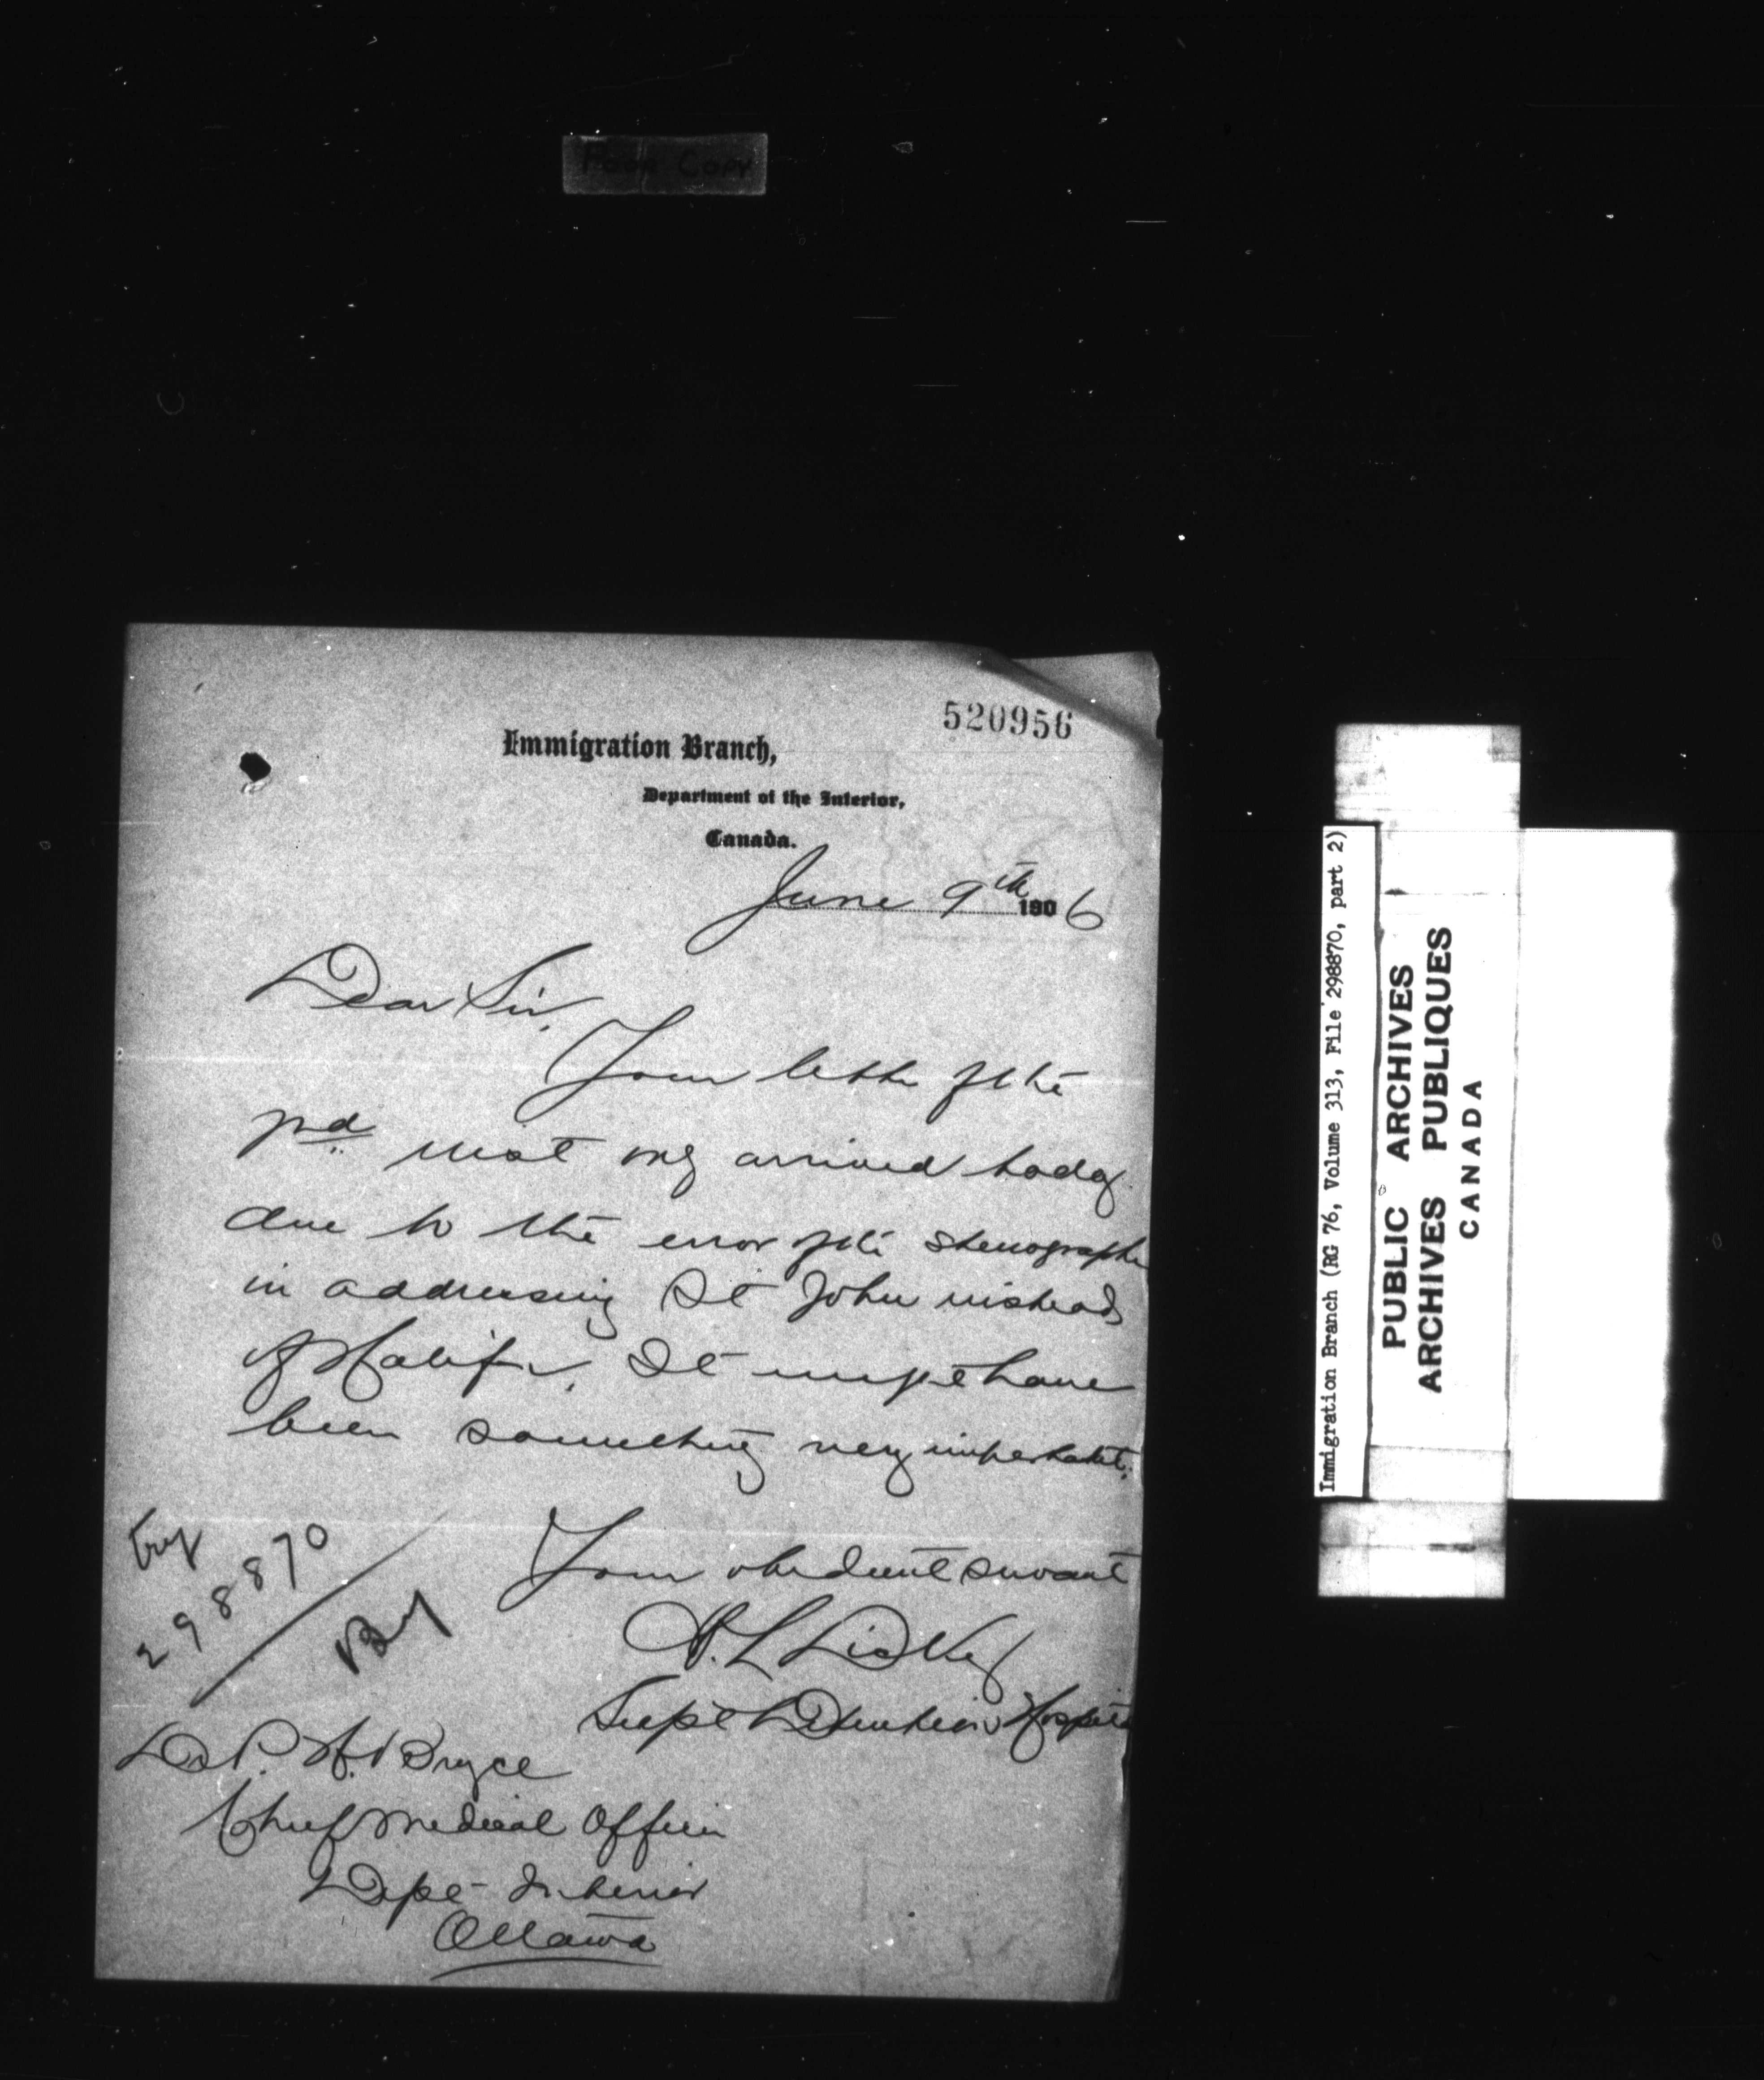 Poor Copy
520956
Immigration Branch,
Department of the Interior,
Canada.
June 9th 1906
Dear Sir,
Your letter of the
inst only arrived today
due to the error of the stenographer
in addressing St John instead
of Halifax. It might have
been something very important.
Your obedient servant
Supt Detention Hospital
298870
Dr P. H. Bryce
Chief Medical Officer
Dept Interior
Ottawa
Immigration Branch (RG 76, Volume 313, File 298870, part 2)
PUBLIC ARCHIVES
ARCHIVES PUBLIQUES
CANADA